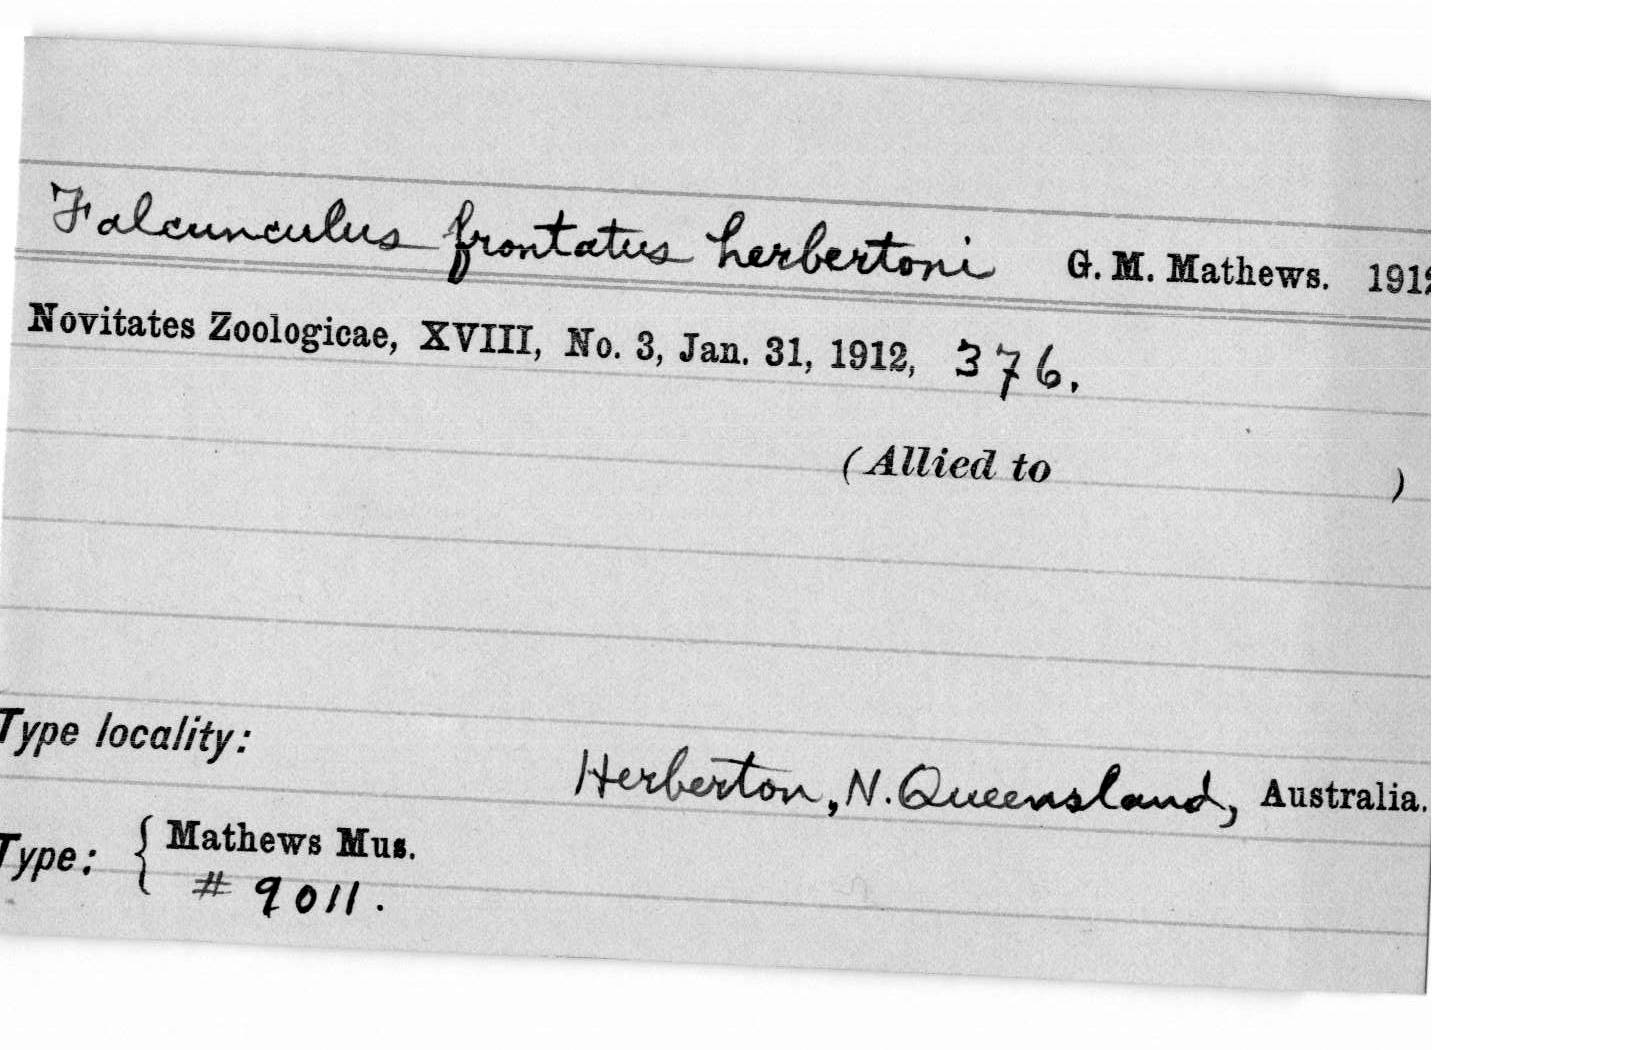 Falcunculus frontatus herbertoni G. M. Mathews. 1912
Novitates Zoologicae, XVIII, No. 3, Jan. 31, 1912, 376.
(Allied to )
Type locality:
Herberton, N. Queensland, Australia.
Type: { Mathews Mus.
# 9011.